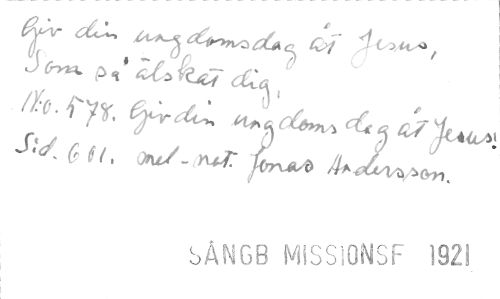 Giv din ungdomsdag åt Jesus,
Som så älskat dig,
N:o. 578. Giv din ungdomsdag åt Jesus!
Sid. 601. mel-not. Jonas Andersson.
SÅNGB MISSIONSF 1921